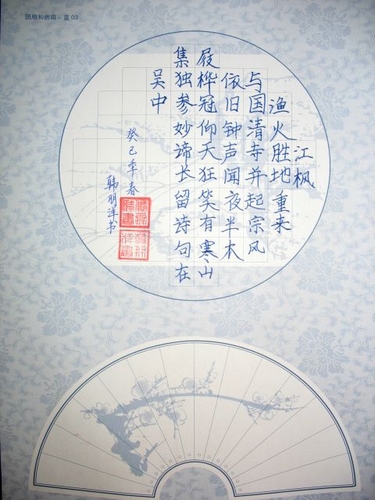 团扇和折扇 - 蓝 03
江枫
渔火胜地重来
与国清寺并起宗风
依旧钟声闻夜半木
屐桦冠仰天狂笑有寒山
集独参妙谛长留诗句在
吴中
癸巳年春
韩明洋书